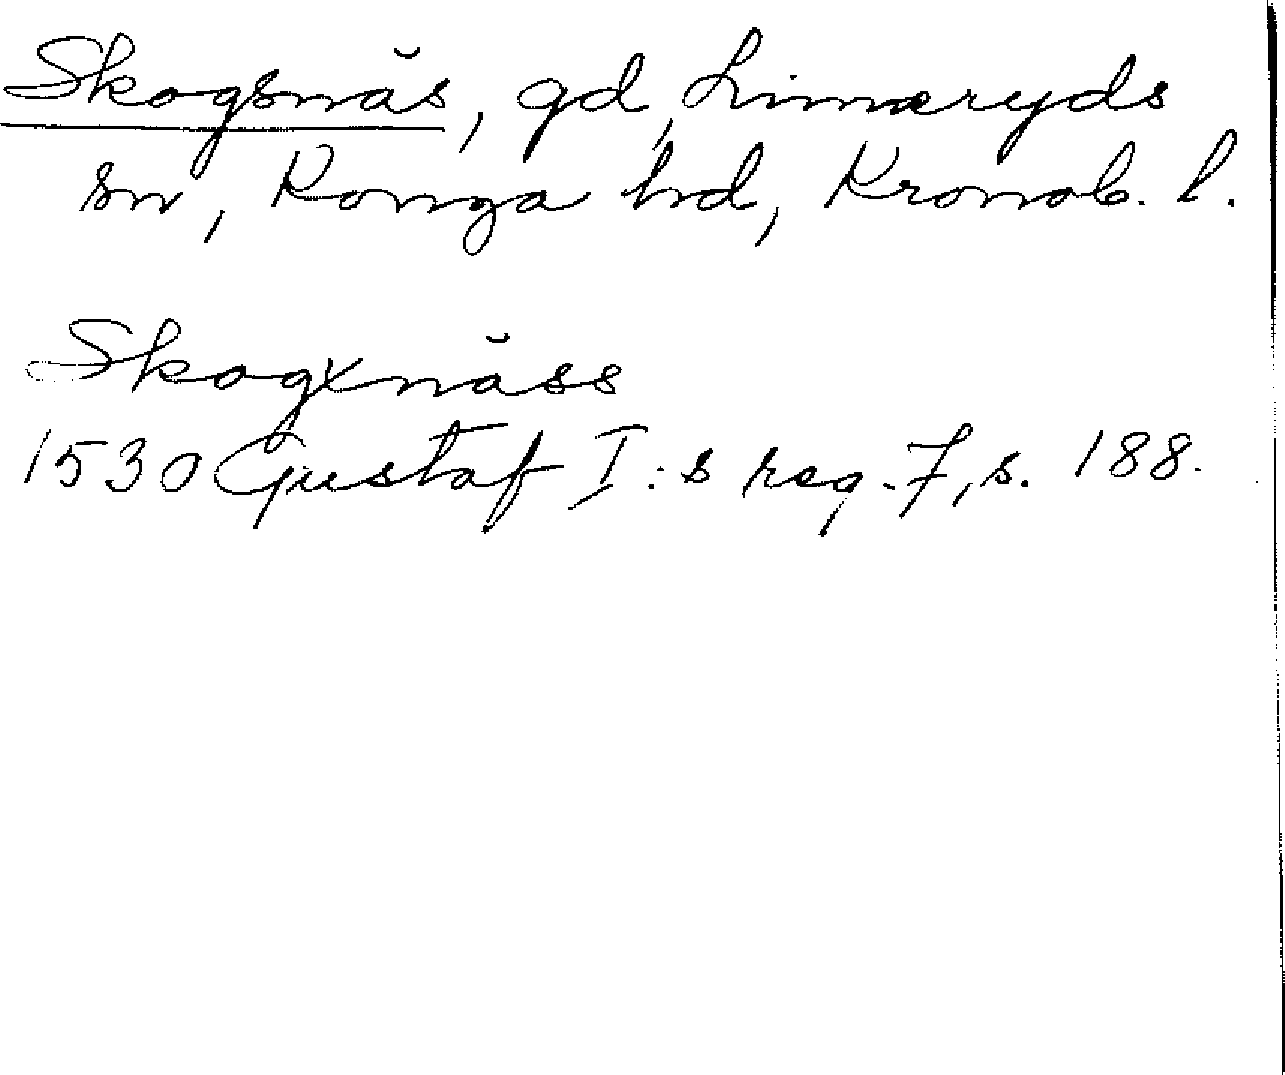 Skogsnäs, gd, Linneryds
sn, Konga hd, Kronob. l.
Skogxnäss
1530 Gustaf I:s reg. 7, s. 188.